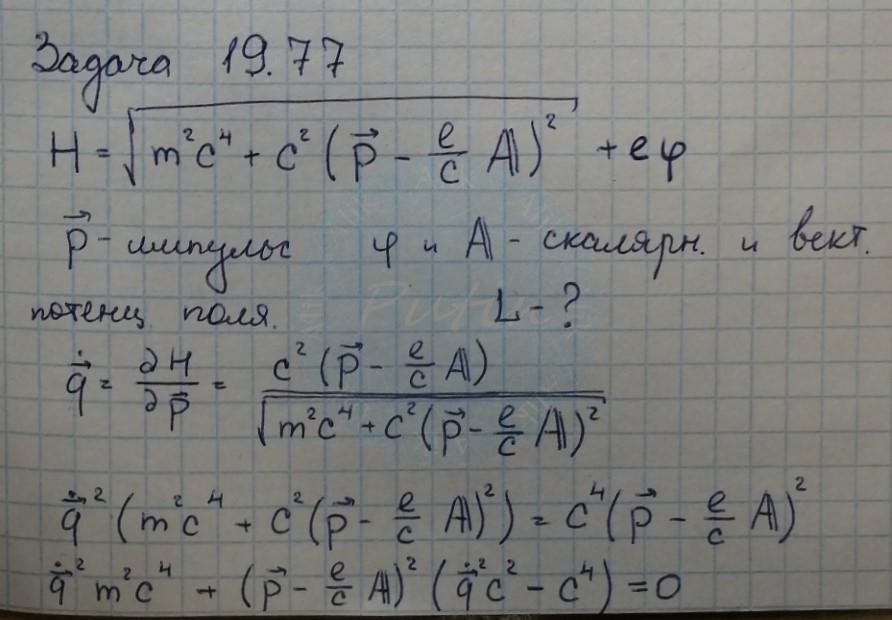 Задача 19.77
H = √(m²c⁴ + c²(p⃗ - e/c 𝔸)²) + eφ
p⃗ - импульс φ и 𝔸 - скалярн. и вект.
потенц. поля. L - ?
q̇⃗ = ∂H/∂p⃗ = c²(p⃗ - e/c 𝔸) / √(m²c⁴ + c²(p⃗ - e/c 𝔸)²)
q̇⃗² (m²c⁴ + c²(p⃗ - e/c 𝔸)²) = c⁴(p⃗ - e/c 𝔸)²
q̇⃗² m²c⁴ + (p⃗ - e/c 𝔸)² (q̇⃗²c² - c⁴) = 0